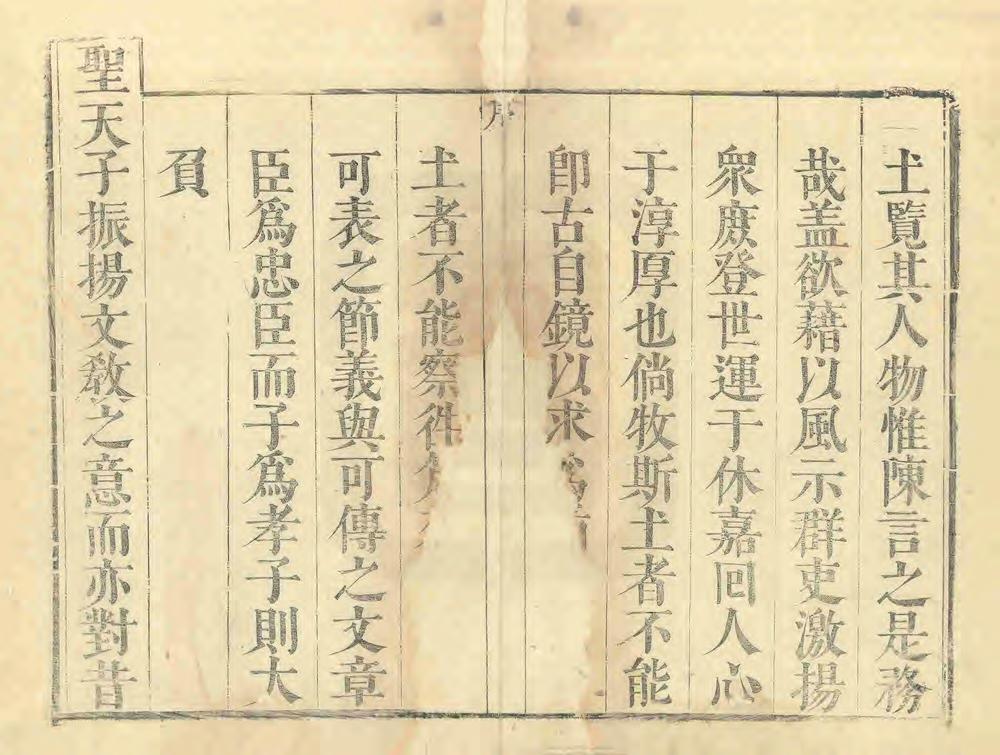 土覽其人物惟陳言之是務
哉盖欲藉以風示群吏激揚
衆庶登世運于休嘉囘人心
于淳厚也倘牧斯土者不能
卽古自鏡以求
序
土者不能察
可表之節義與可傳之文章
臣爲忠臣而子爲孝子則大
負
聖天子振揚文敎之意而亦對昔